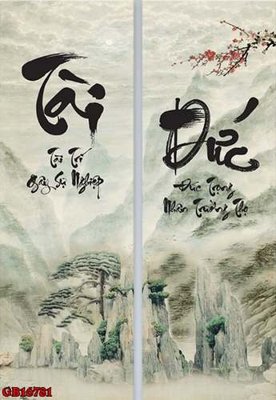 Tài
Tài Trí
Gây Sự Nghiệp
Đức
Đức Trọng
Nhân Trường Thọ
GB16781